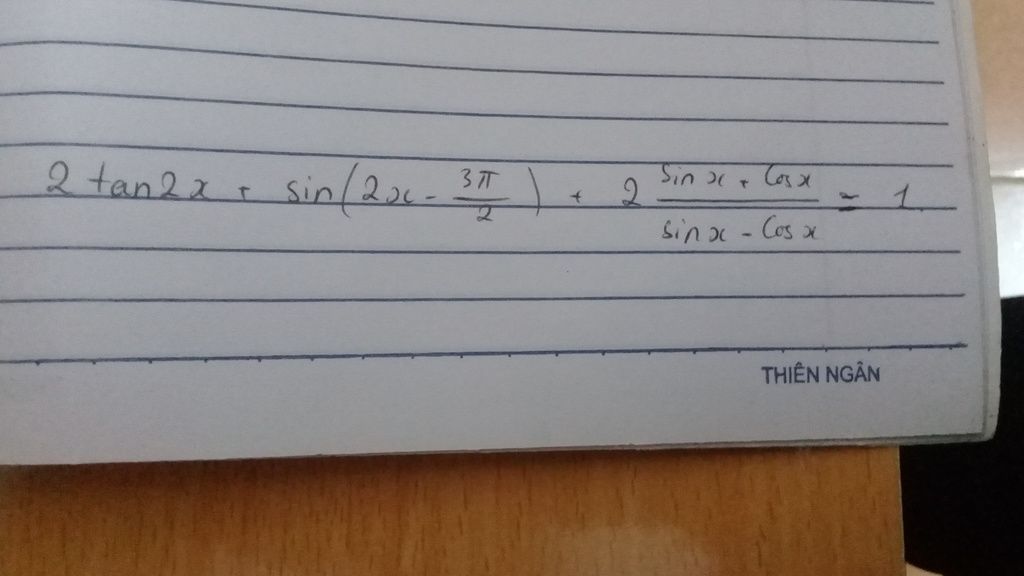 2 tan2x + sin(2x - 3π/2) + 2 (sin x + Cos x)/(sin x - Cos x) = 1
THIÊN NGÂN